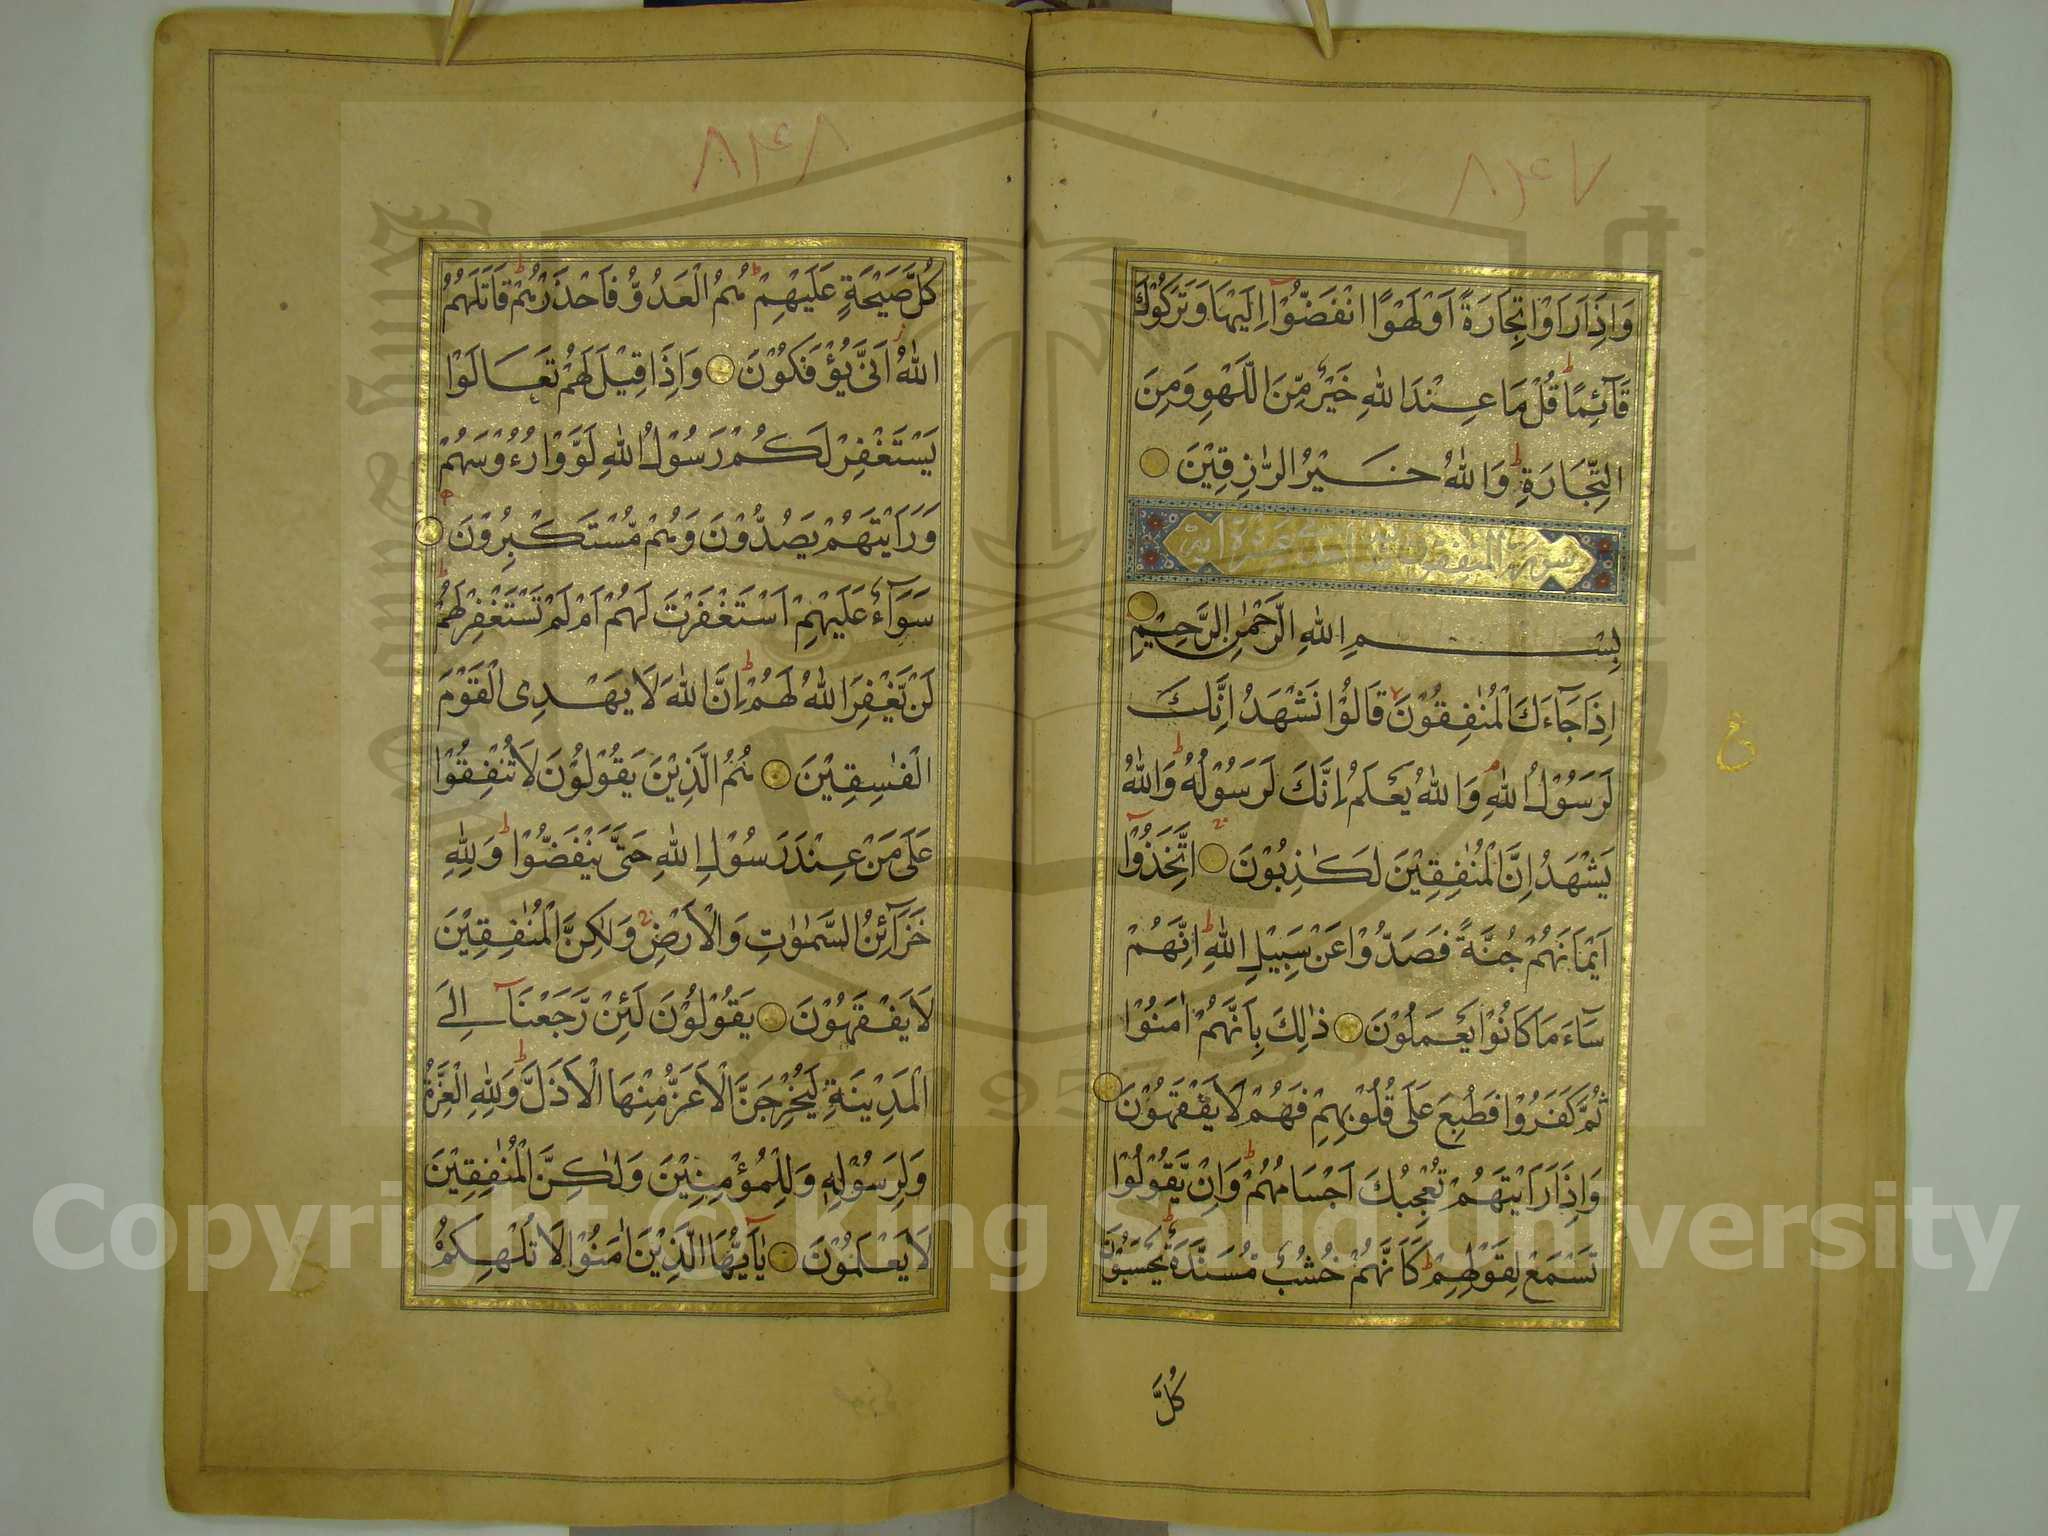 ٨٤٧
وَاِذَا رَاَوْا تِجَارَةً اَوْ لَهْوًا انْفَضُّوْٓا اِلَيْهَا وَتَرَكُوْكَ
قَآئِمًا ؕ قُلْ مَا عِنْدَ اللّٰهِ خَيْرٌ مِّنَ اللَّهْوِ وَمِنَ
التِّجَارَةِ ؕ وَاللّٰهُ خَيْرُ الرّٰزِقِيْنَ
سورة المنفقون احدى عشرة اية
بِسْمِ اللّٰهِ الرَّحْمٰنِ الرَّحِيْمِ
اِذَا جَآءَكَ الْمُنٰفِقُوْنَ قَالُوْا نَشْهَدُ اِنَّكَ
لَرَسُوْلُ اللّٰهِ ۘ وَاللّٰهُ يَعْلَمُ اِنَّكَ لَرَسُوْلُهٗ ؕ وَاللّٰهُ
يَشْهَدُ اِنَّ الْمُنٰفِقِيْنَ لَكٰذِبُوْنَ اتَّخَذُوْٓا
اَيْمَانَهُمْ جُنَّةً فَصَدُّوْا عَنْ سَبِيْلِ اللّٰهِ ؕ اِنَّهُمْ
سَآءَ مَا كَانُوْا يَعْمَلُوْنَ ذٰلِكَ بِاَنَّهُمْ اٰمَنُوْا
ثُمَّ كَفَرُوْا فَطُبِعَ عَلٰى قُلُوْبِهِمْ فَهُمْ لَا يَفْقَهُوْنَ
وَاِذَا رَاَيْتَهُمْ تُعْجِبُكَ اَجْسَامُهُمْ ؕ وَاِنْ يَّقُوْلُوْا
تَسْمَعْ لِقَوْلِهِمْ ؕ كَاَنَّهُمْ خُشُبٌ مُّسَنَّدَةٌ ؕ يَحْسَبُوْنَ
كُلَّ
ع
٨٤٨
كُلَّ صَيْحَةٍ عَلَيْهِمْ ؕ هُمُ الْعَدُوُّ فَاحْذَرْهُمْ ؕ قَاتَلَهُمُ
اللّٰهُ ؗ اَنّٰى يُؤْفَكُوْنَ وَاِذَا قِيْلَ لَهُمْ تَعَالَوْا
يَسْتَغْفِرْ لَكُمْ رَسُوْلُ اللّٰهِ لَوَّوْا رُءُوْسَهُمْ
وَرَاَيْتَهُمْ يَصُدُّوْنَ وَهُمْ مُّسْتَكْبِرُوْنَ
سَوَآءٌ عَلَيْهِمْ اَسْتَغْفَرْتَ لَهُمْ اَمْ لَمْ تَسْتَغْفِرْ لَهُمْ ؕ
لَنْ يَّغْفِرَ اللّٰهُ لَهُمْ ؕ اِنَّ اللّٰهَ لَا يَهْدِى الْقَوْمَ
الْفٰسِقِيْنَ هُمُ الَّذِيْنَ يَقُوْلُوْنَ لَا تُنْفِقُوْا
عَلٰى مَنْ عِنْدَ رَسُوْلِ اللّٰهِ حَتّٰى يَنْفَضُّوْا ؕ وَلِلّٰهِ
خَزَآئِنُ السَّمٰوٰتِ وَالْاَرْضِ وَلٰكِنَّ الْمُنٰفِقِيْنَ
لَا يَفْقَهُوْنَ يَقُوْلُوْنَ لَئِنْ رَّجَعْنَآ اِلَى
الْمَدِيْنَةِ لَيُخْرِجَنَّ الْاَعَزُّ مِنْهَا الْاَذَلَّ ؕ وَلِلّٰهِ الْعِزَّةُ
وَلِرَسُوْلِهٖ وَلِلْمُؤْمِنِيْنَ وَلٰكِنَّ الْمُنٰفِقِيْنَ
لَا يَعْلَمُوْنَ يٰٓاَيُّهَا الَّذِيْنَ اٰمَنُوْا لَا تُلْهِكُمْ
Copyright © King Saud University